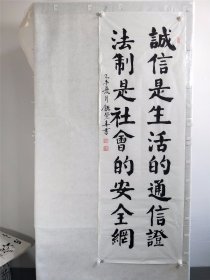 誠信是生活的通信證
法制是社會的安全網